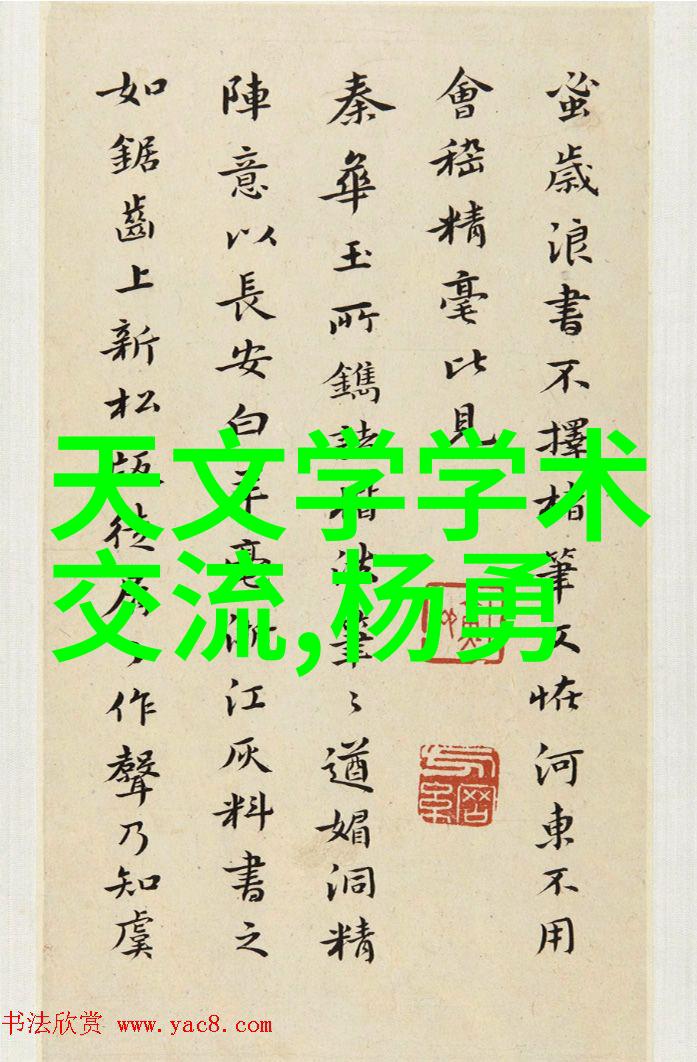 蚤歲浪書不擇楮筆又恠河東不用
會稽精毫比見
秦華玉所鐫諸楷法筆〻遒媚洞精
陣意以長安白羊毫浙江灰料書之
如鋸齒上新松板徒作聲乃知虞
天文学学术
交流,杨勇
书法欣赏 www.yac8.com